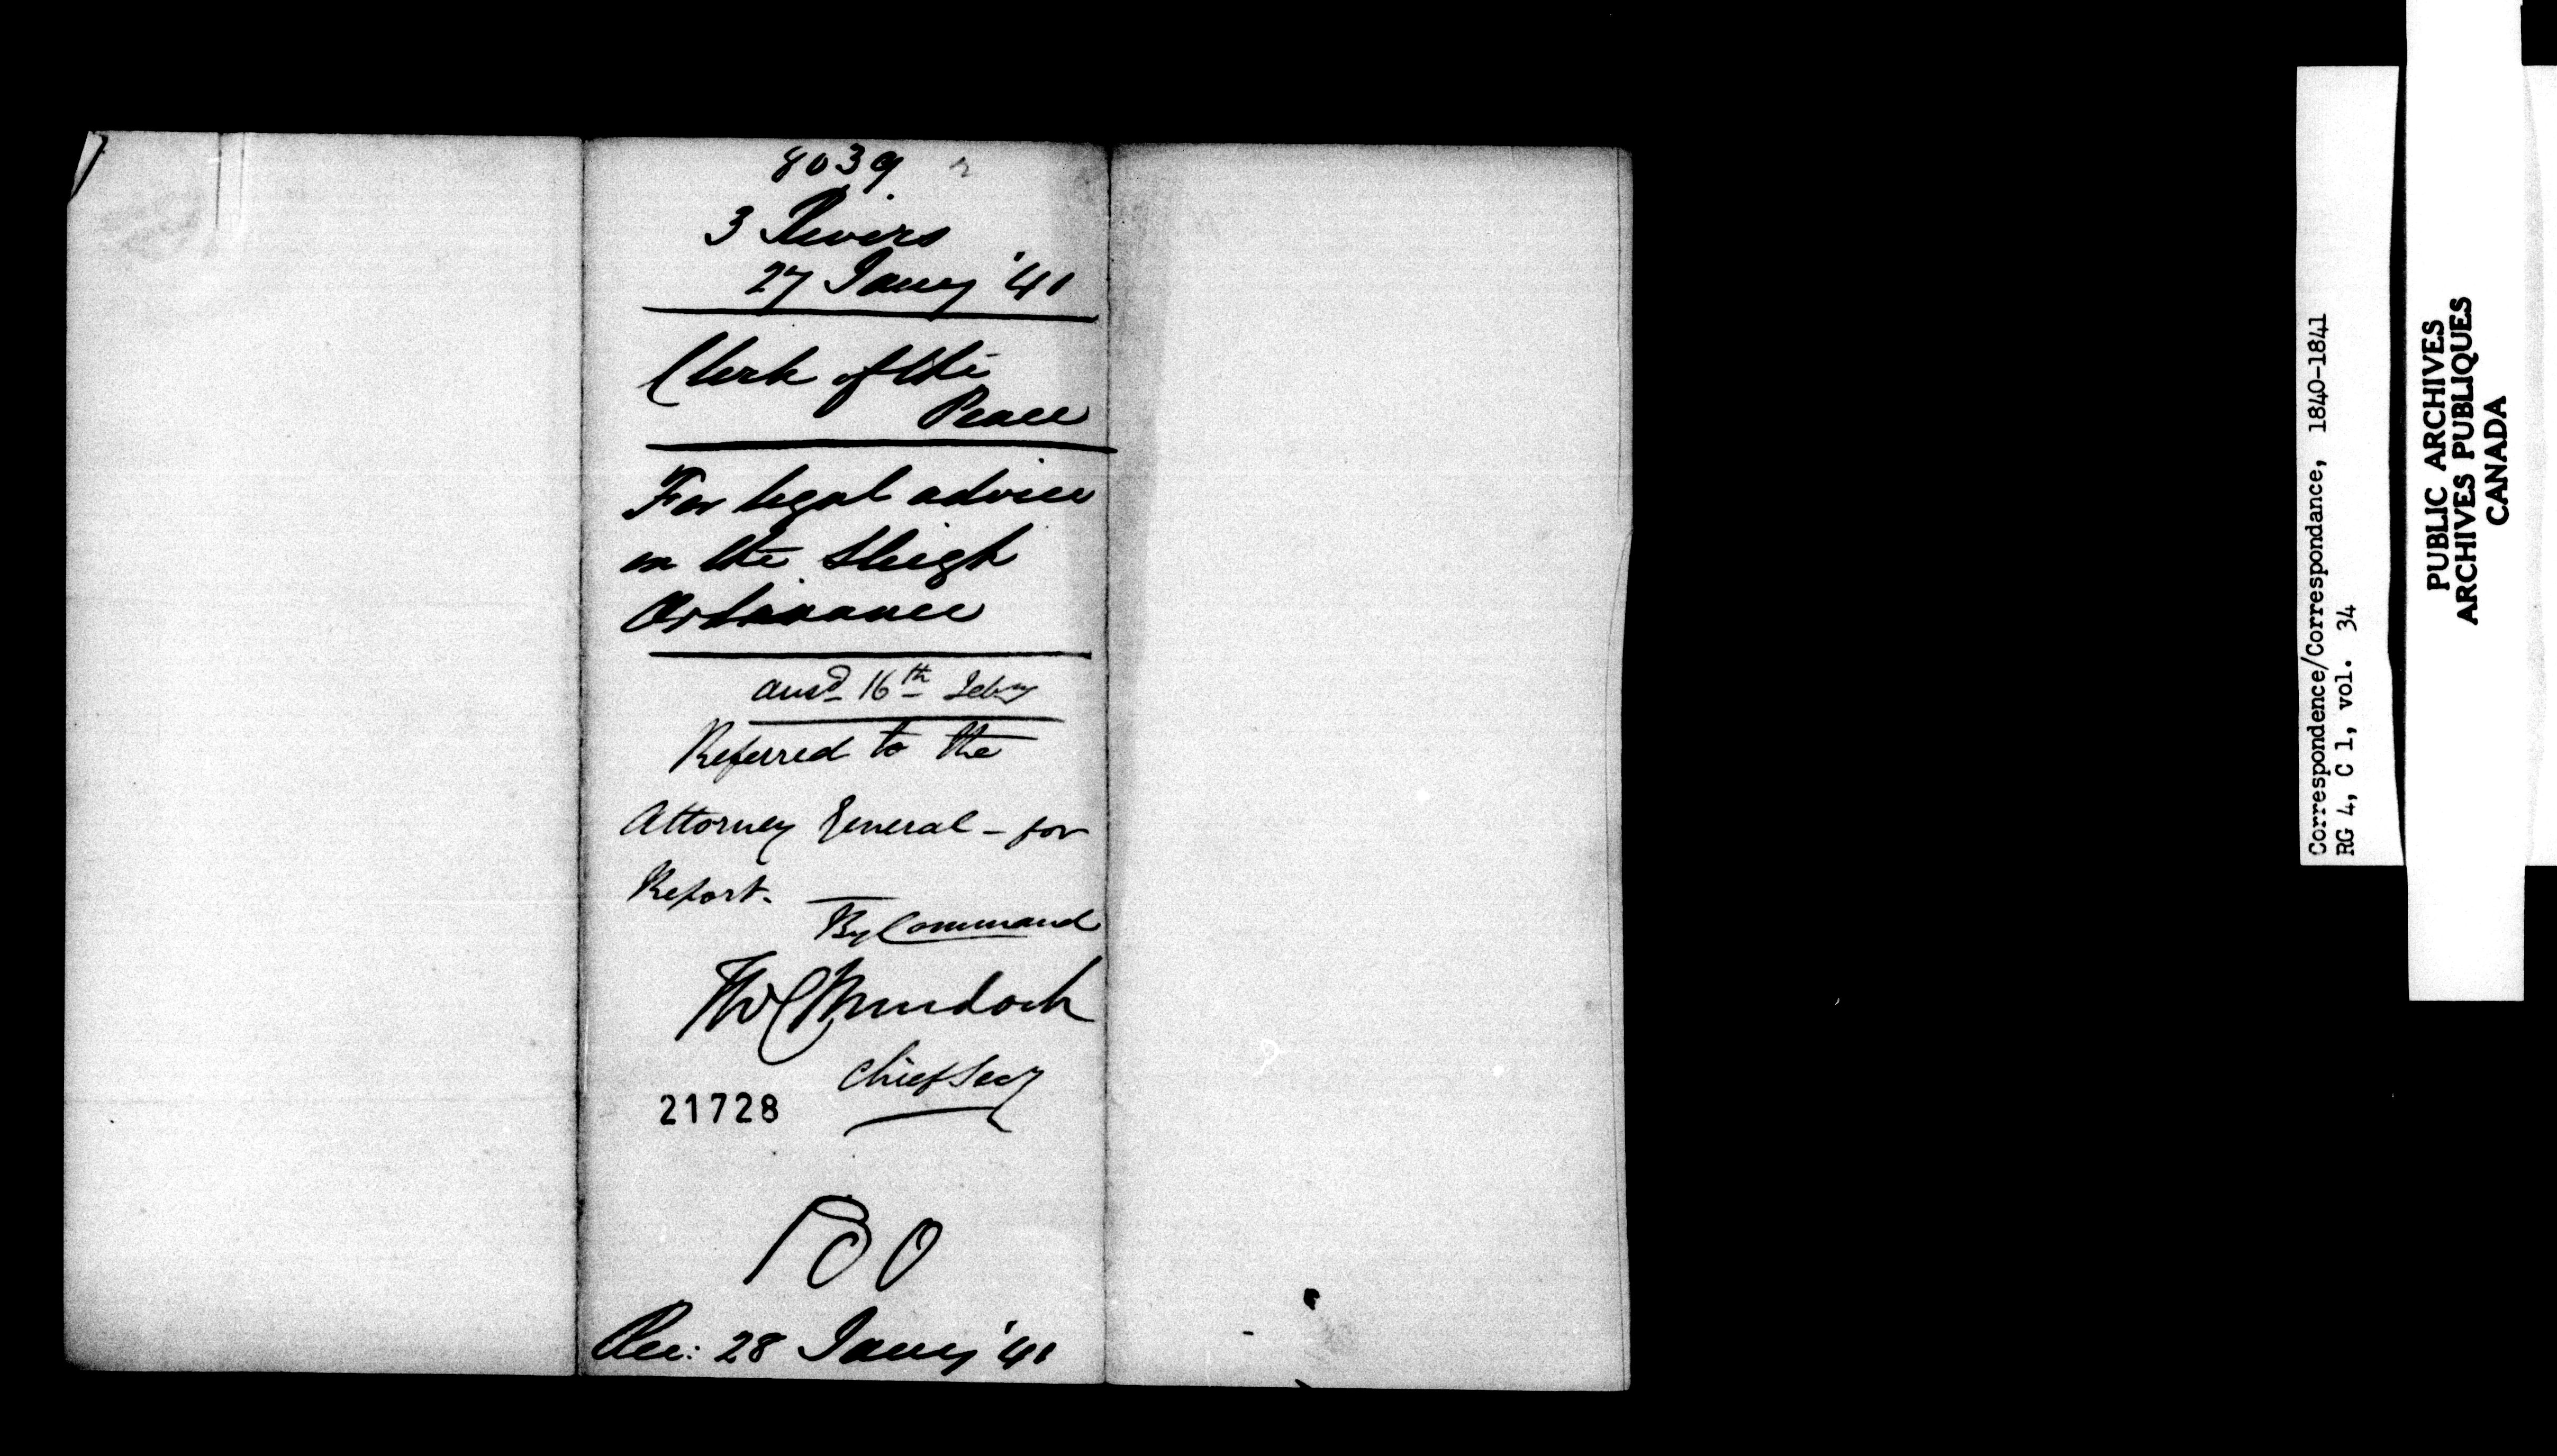 8039
3 Rivers
27 Jany '41
Clerk of the
Peace
For legal advice
on the Sleigh
Ordinance
ansd 16th Feby
Referred to the
Attorney General - for
Report. —
By Command
TWC Murdoch
Chief Secy
21728
Rec: 28 Jany '41
Correspondence/Correspondance, 1840-1841
RG 4, C 1, vol. 34
PUBLIC ARCHIVES
ARCHIVES PUBLIQUES
CANADA